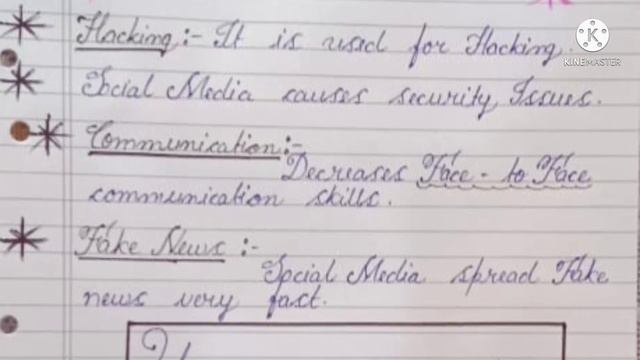 Hacking :- It is used for Hacking.
Social Media causes security Issues.
Communication :-
Decreases Face - to Face
communication skills.
Fake News :-
Social Media spread Fake
news very fast.
KINEMASTER